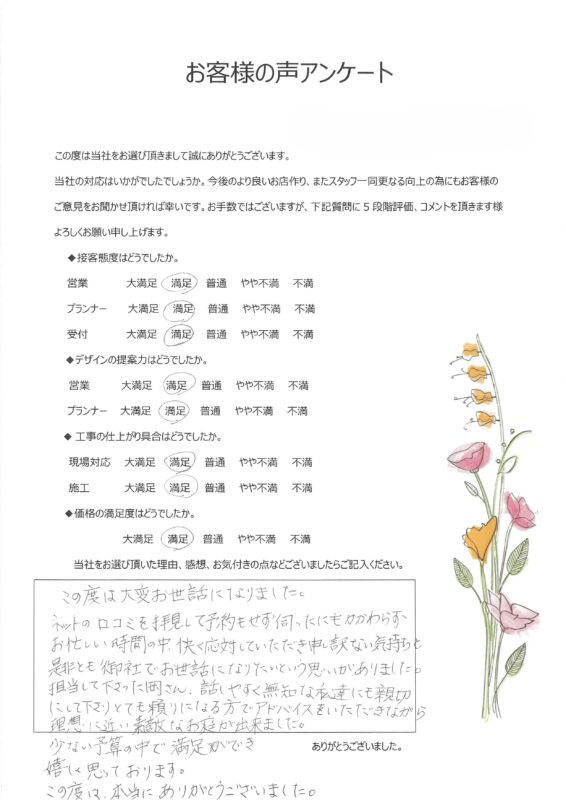 お客様の声アンケート
この度は当社をお選び頂きまして誠にありがとうございます。
当社の対応はいかがでしたでしょうか。今後のより良いお店作り、またスタッフ一同更なる向上の為にもお客様の
ご意見をお聞かせ頂ければ幸いです。お手数ではございますが、下記質問に 5 段階評価、コメントを頂きます様
よろしくお願い申し上げます。
◆接客態度はどうでしたか。
営業 大満足 満足 普通 やや不満 不満
プランナー 大満足 満足 普通 やや不満 不満
受付 大満足 満足 普通 やや不満 不満
◆デザインの提案力はどうでしたか。
営業 大満足 満足 普通 やや不満 不満
プランナー 大満足 満足 普通 やや不満 不満
◆ 工事の仕上がり具合はどうでしたか。
現場対応 大満足 満足 普通 やや不満 不満
施工 大満足 満足 普通 やや不満 不満
◆価格の満足度はどうでしたか。
大満足 満足 普通 やや不満 不満
当社をお選び頂いた理由、感想、お気付きの点などございましたらご記入ください。
この度は大変お世話になりました。
ネットの口コミを拝見して予約もせず伺ったにもかかわらず
お忙しい時間の中、快く応対していただき申し訳ない気持ちと
是非とも御社でお世話になりたいという思いがありました。
担当して下さった岡さん、話しやすく無知な私達にも親切
にして下さりとても頼りになる方でアドバイスをいただきながら
理想に近い素敵なお庭が出来ました。
少ない予算の中で満足ができ
嬉しく思っております。
この度は、本当にありがとうございました。
ありがとうございました。